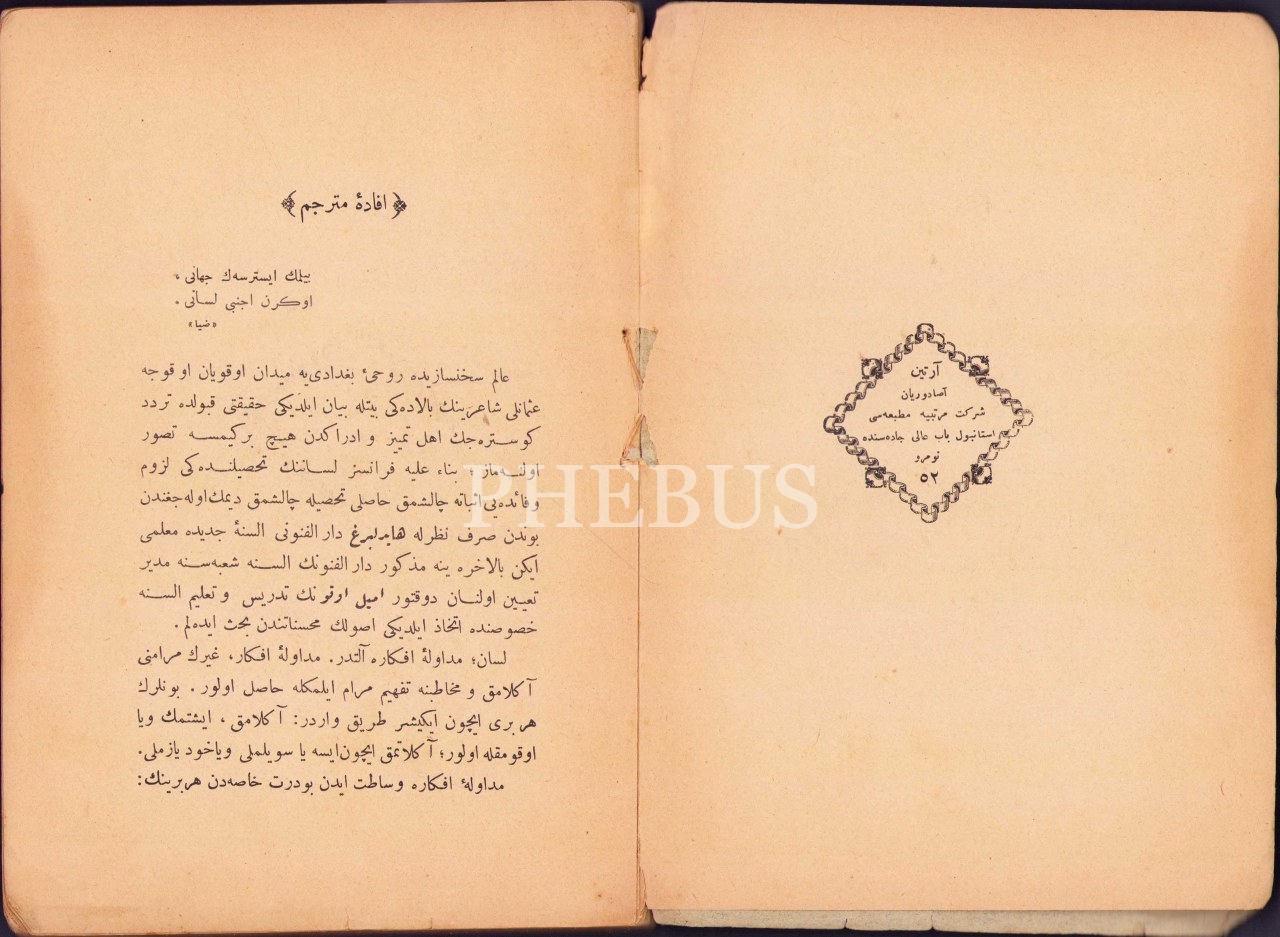 آرتین
آصادوریان
شركت مرتبیه مطبعه‌سی
استانبول باب عالی جاده‌سنده
نومرو
٥٢
﴿ افادهٔ مترجم ﴾
بیلمك ایسترسه‌ك جهانی ،
اوكرن اجنبی لسانی .
«ضیا»
عالم سخنسازیده روحیٔ بغدادی‌یه میدان اوقویان او قوجه
عثمانلی شاعرینك بالاده‌كی بیتله بیان ایلدیكی حقیقتی قبولده تردد
كوستره‌جك اهل تمییز و ادراكدن هیچ بركیمسه تصور
اولنه‌ماز ؛ بناء علیه فرانسز لساننك تحصیلنده‌كی لزوم
و فائده‌یی اثباته چالشمق حاصلی تحصیله چالشمق دیمك اوله‌جغندن
بوندن صرف نظرله هایدلبرغ دار الفنونی السنهٔ جدیده معلمی
ایكن بالاخره ینه مذكور دار الفنونك السنه شعبه‌سنه مدیر
تعیین اولنان دوقتور امیل اوتونك تدریس و تعلیم السنه
خصوصنده اتخاذ ایلدیكی اصولك محسناتندن بحث ایده‌لم .
لسان؛ مداولهٔ افكاره آلتدر. مداولهٔ افكار، غیرك مرامنی
آكلامق و مخاطبنه تفهیم مرام ایلمكله حاصل اولور . بونلرك
هربری ایچون ایكیشر طریق واردر: آكلامق ، ایشتمك ویا
اوقومقله اولور؛ آكلاتمق ایچون‌ایسه یا سویلملی ویاخود یازملی.
مداولهٔ افكاره وساطت ایدن بودرت خاصه‌دن هربرینك:
PHEBUS